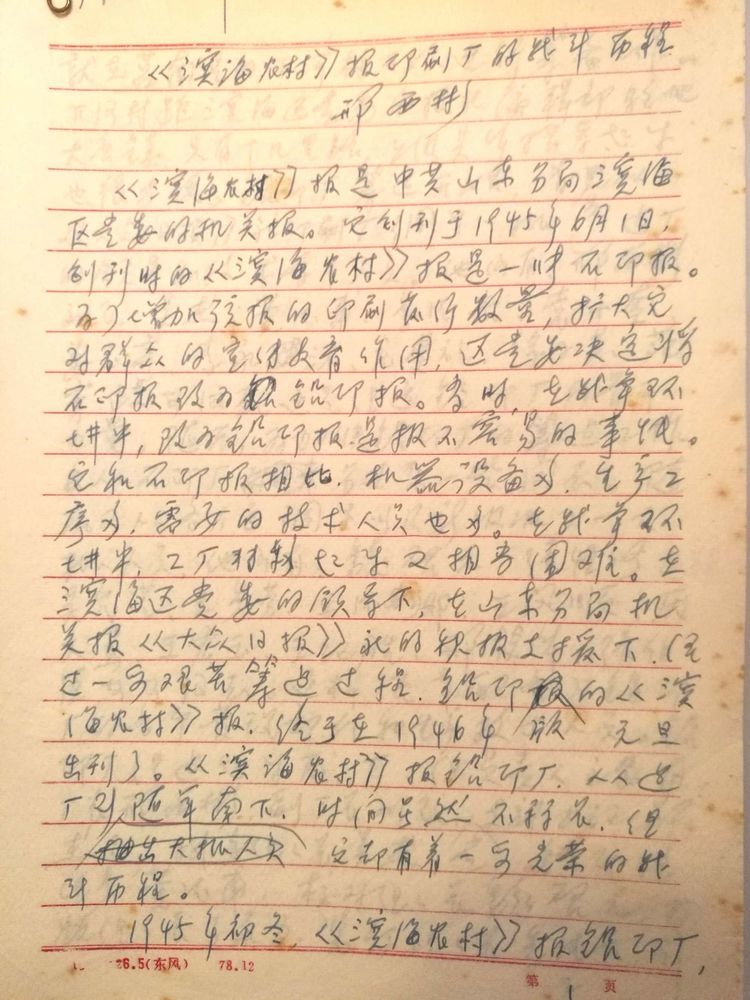 《滨海农村》报印刷厂的战斗历程
邢西村
《滨海农村》报是中共山东分局滨海
区党委的机关报。它创刊于1945年6月1日，
创刊时的《滨海农村》报是一张石印报。
为了增加该报的印刷发行数量，扩大它
对群众的宣传教育作用，区党委决定将
石印报改为铅印报。当时，在战争环
境中，改为铅印报是极不容易的事情。
它和石印报相比，机器设备多，生产工
序多，需要的技术人员也多。在战争环
境中，工厂材料起来又相当困难。在
滨海区党委的领导下，在山东分局机
关报《大众日报》社的积极支援下，经
过一番艰苦筹建过程，铅印版的《滨
海农村》报，终于在1946年元旦
出刊了。《滨海农村》报铅印厂，从建
厂到随军南下，时间虽然不算长，但
抽出大批人员 它却有着一番光荣的战
斗历程。
1945年初冬，《滨海农村》报铅印厂，
26.5(东风) 78.12
第 1 页